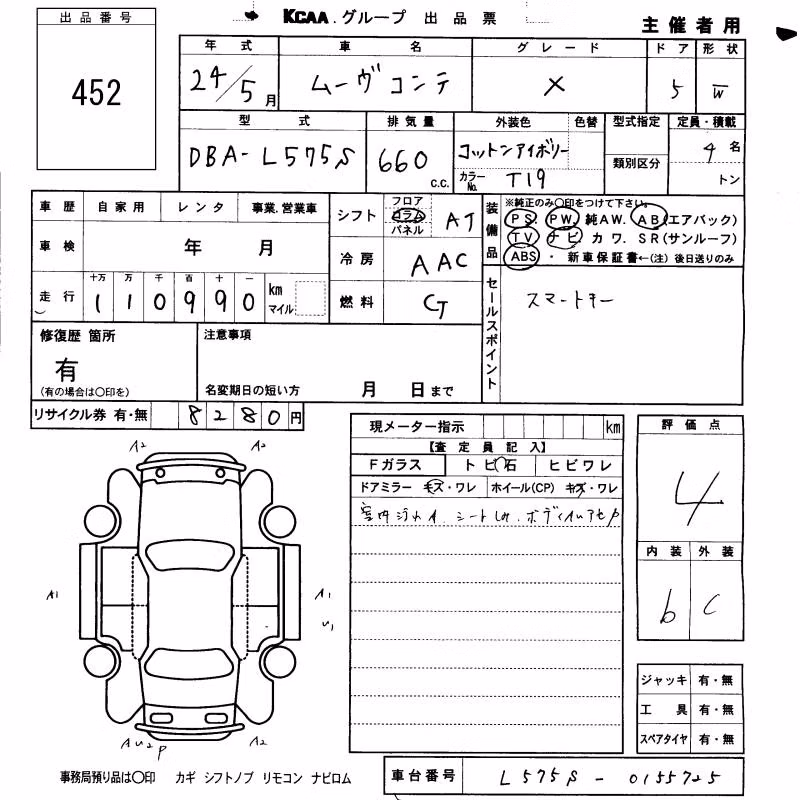 出品番号
452
KCAA.グループ 出品票
主催者用
年式 車名 グレード ドア 形状
24/5月 ムーヴコンテ X 5 W
型式 排気量 外装色 色替 型式指定 定員・積載
DBA-L575S 660 c.c. コットンアイボリー 類別区分 4名
カラーNo. T19 トン
車歴 自家用 レンタ 事業.営業車
シフト フロア コラム パネル AT
装備品 ※純正のみ〇印をつけて下さい。
PS. PW. 純AW. AB(エアバック)
TV ナビ カワ. SR(サンルーフ)
ABS ・ 新車保証書←(注)後日送りのみ
車検 年 月
冷房 AAC
走行 十万 万 千 百 十 一
110990 km マイル
燃料 G
セールスポイント
スマートキー
修復歴 箇所
有
(有の場合は〇印を)
注意事項
名変期日の短い方 月 日まで
リサイクル券 有・無 8280円
現メーター指示 km
【査定員記入】
Fガラス トビ石 ヒビワレ
ドアミラー キズ・ワレ ホイール(CP) キズ・ワレ
評価点
4
内装 外装
b C
A2 A2
A1 A1
U1
AU2P A2
ジャッキ 有・無
工具 有・無
スペアタイヤ 有・無
事務局預り品は〇印 カギ シフトノブ リモコン ナビロム
車台番号 L575S-0155725